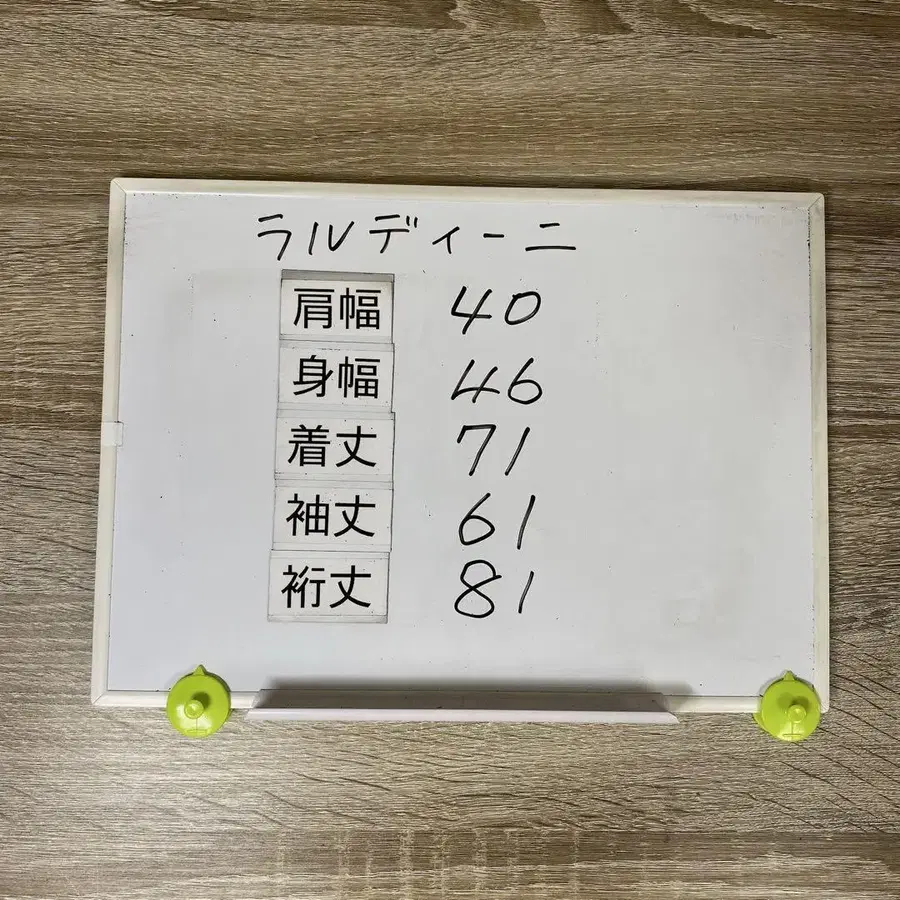 ラルディーニ
肩幅 40
身幅 46
着丈 71
袖丈 61
裄丈 81